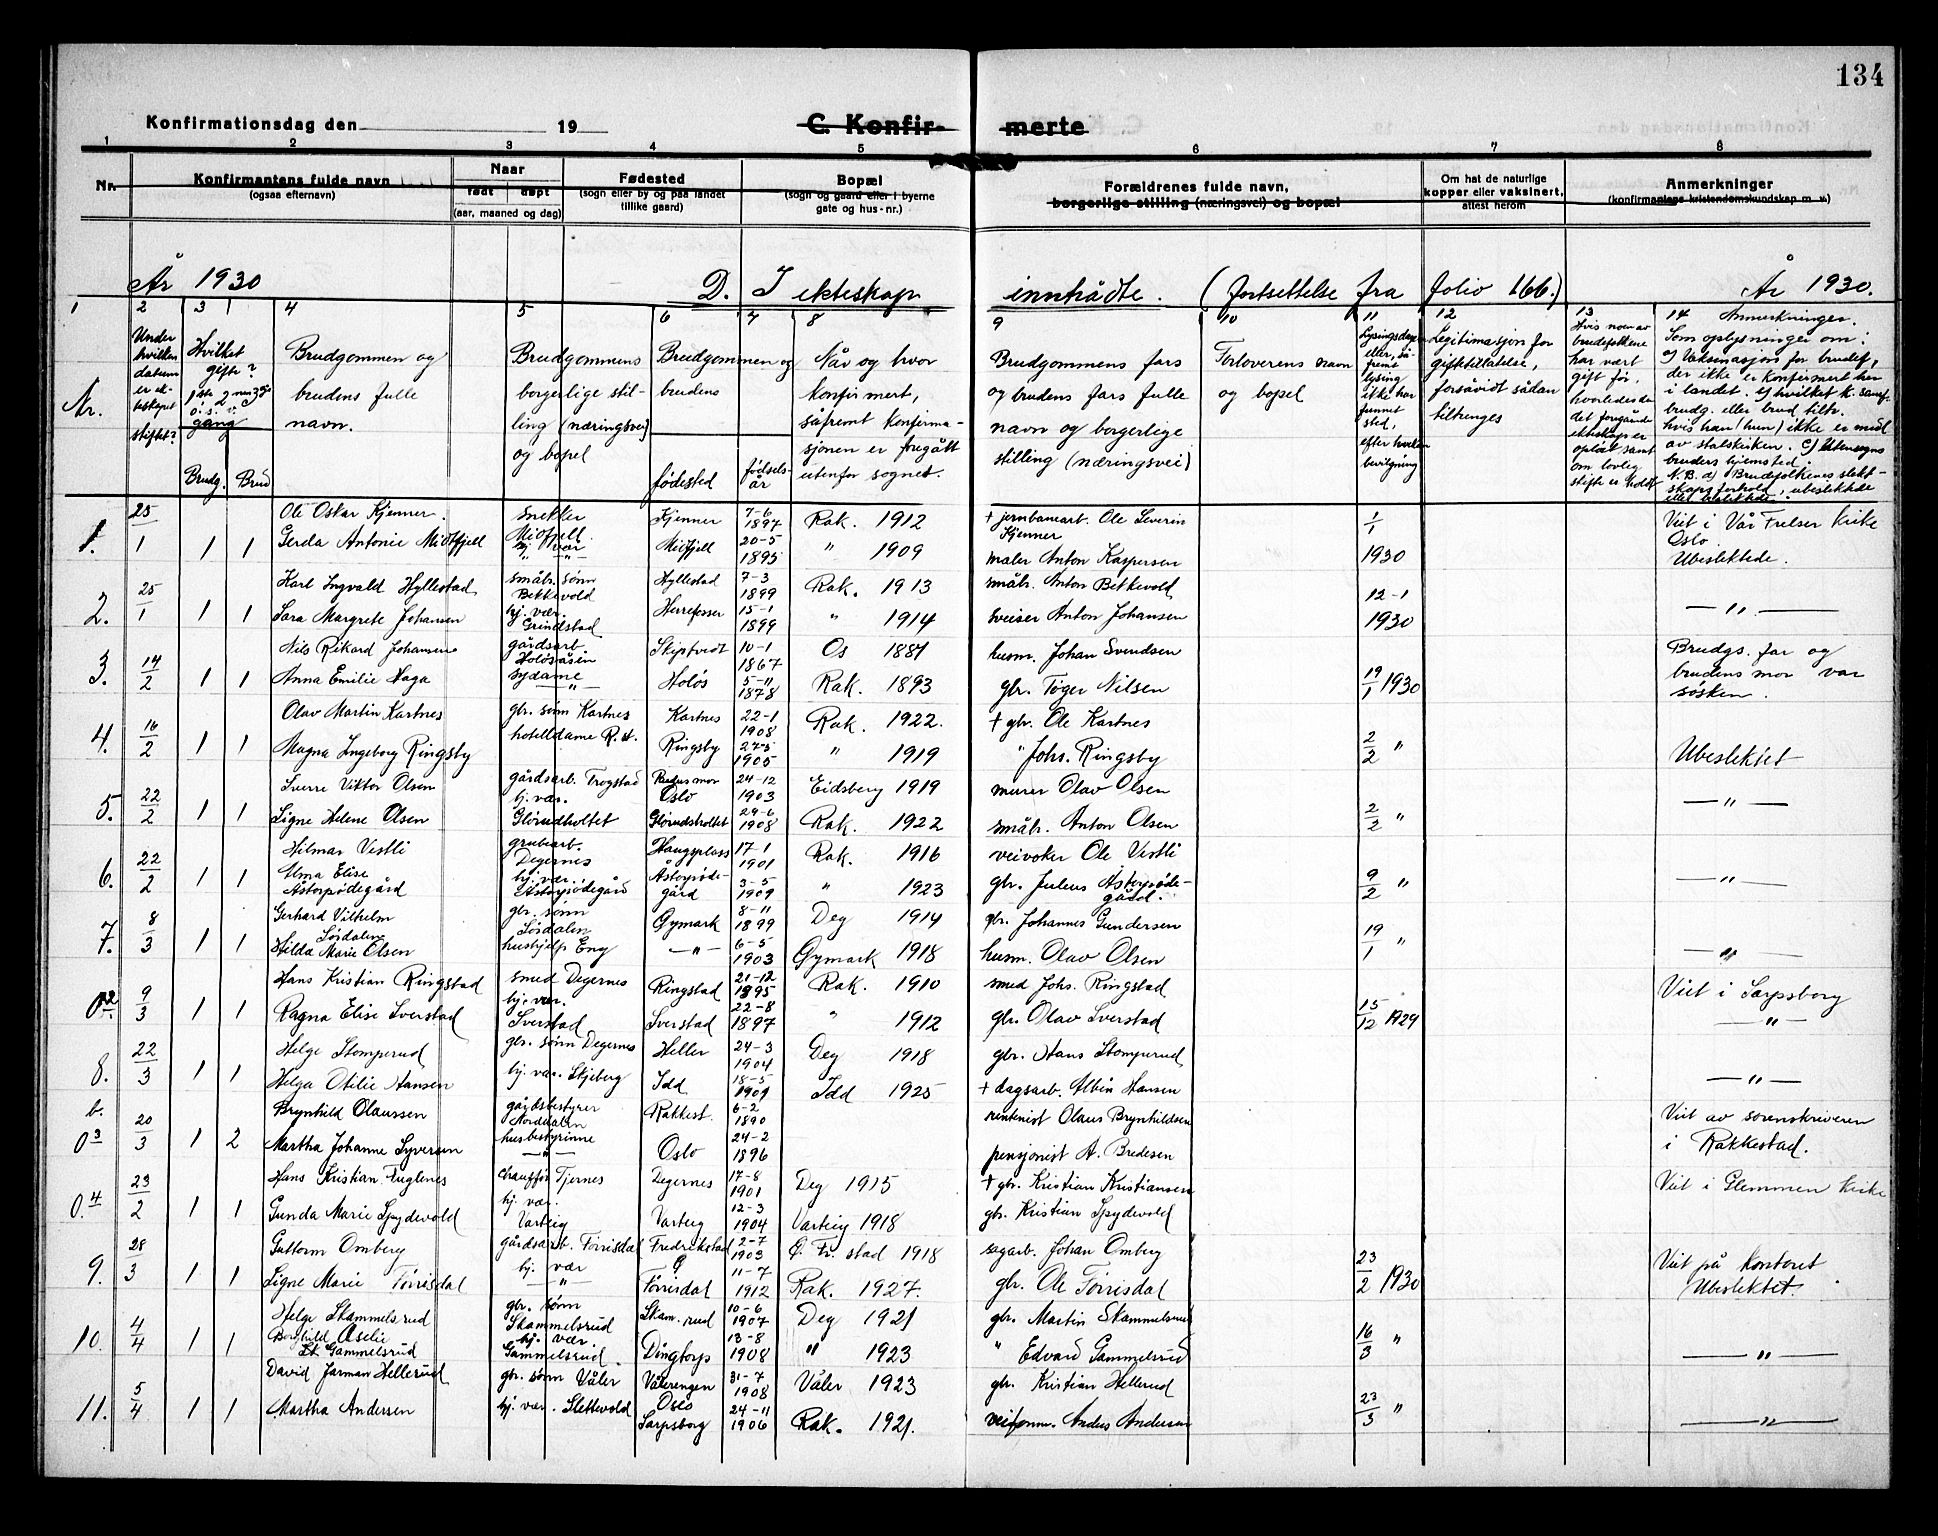 134
Konfirmationsdag den 19
C. Konfir- merte
1 2 3 4 5 6 7 8
Nr.
Konfirmantens fulde navn
(ogsaa efternavn)
Naar
født døpt
(aar, maaned og dag)
Fødested
(sogn eller by og paa landet
tillike gaard)
Bopæl
(sogn og gaard eller i byerne
gate og hus-nr.)
Forældrenes fulde navn,
borgerlige stilling (næringsvei) og bopæl
Om hat de naturlige
kopper eller vaksinert,
attest herom
Anmerkninger
(konfirmantens kristendomskundskap m. v.)
År 1930 D. I ekteskap inntrådte. (fortsettelse fra folio 166.) År 1930.
1 2 3 4 5 6 7 8 9 10 11 12 13 14
Nr.
Under
hvilken
datum
er ek-
teskapet
stiftet?
Hvilket
gifte?
1ste 2net 3dje
o.s.v.
gang
Brudg. Brud
Brudgommen og
brudens fulle
navn.
Brudgommens
borgerlige stil-
ling (næringsvei)
og bopel
Brudgommen og
brudens
fødested
fødsels-
år
Når og hvor
konfirmert,
såfremt konfirma-
sjonen er foregått
utenfor sognet.
Brudgommens fars
og brudens fars fulle
navn og borgerlige
stilling (næringsvei)
Forloverens navn
og bopel
Lysingsdagen
eller, så-
fremt
lysing
ikke har
funnet
sted,
efter hvilken
bevilgning
Legitimasjon for
gifttillatelse,
forsåvidt sådan
tiltrenges
Hvis noen av
brudefolkene
har vært
gift før,
hvorledes
det forgående
ekteskap er
opløst samt
om lovlig
skifte er holdt
Anmerkninger.
Som oplysninger om:
a) Vaksinasjon for brudef,
der ikke er konfirmert her
i landet. b) hvilket k. samf.
brudg. eller brud tilh.
hvis han (hun) ikke er medl
av statskirken. c) Utensogns
bruders hjemsted.
N.B. d) Brudefolkenes slekt-
skapsforhold, ubeslektede
eller beslektede
1. 25/1 1 1 Ole Oskar Kjenner. snekker Midtfjell. Kjenner 7-6 1897 Rak. 1912 + jernbanearb. Ole Severin Kjenner 1/1 1930 Viet i Vår Frelser kirke Oslo.
Gerda Antonie Midtfjell hj. vær Midtfjell 20-5 1895 " 1909 maler Anton Kaspersen Ubeslektede.
2. 25/1 1 1 Karl Ingvald Hyllestad småbr. sønn Bekkevold Hyllestad 7-3 1899 Rak. 1913 småbr. Anton Bekkevold 12-1 1930 — " —
Sara Margrete Johansen hj. vær. Grindstad Herrefosser 15-1 1899 " 1914 sveiser Anton Johansen
3. 14/2 1 1 Nils Rikard Johansen gårdsarb. Holøsåsen Skiptvedt 10-1 1867 Os 1881 husm. Johan Svendsen 19/1 1930 Brudgs. far og
Anna Emilie Haga sydame — " — Holøs 5-11 1878 Rak. 1893 gbr. Tøger Nilsen brudens mor var søsken.
4. 16/2 1 1 Olav Martin Kartnes gbr. sønn Kartnes Kartnes 22-1 1908 Rak. 1922. + gbr. Ole Kartnes 2/2 " Ubeslektet
Magna Ingeborg Ringsby hotelldame R.st. Ringsby 27-5 1905 " 1919 " Johs. Ringsby
5. 22/2 1 1 Sverre Viktor Olsen gårdsarb. Trøgstad Oslo 24-12 1903 Eidsberg 1919 murer Olav Olsen 2/2 " — " —
Signe Helene Olsen hj. vær. Glørudholtet Glørudsholtet 29-6 1908 Rak. 1922 småbr. Anton Olsen
6. 22/2 1 1 Hilmar Vestli grubearb. Degernes Haugsplass 17-1 1901 Rak. 1916 veivokter Ole Vestli 9/2 " — " —
Alma Elise Åstorpødegård hj. vær. Åstorpødegård Åstorpødegård 3-5 1909 " 1923 gbr. Julius Åstorpødegård.
7. 8/3 1 1 Gerhard Vilhelm Sørdalen gbr. sønn Sørdalen Øymark 8-11 1899 Deg 1914 gbr. Johannes Gundersen 19/1 " — " —
Hilda Marie Olsen hushjelp Eng — " — 6-5 1903 Øymark 1918 husm. Olav Olsen
0.2 9/3 1 1 Hans Kristian Ringstad smed Degernes Ringstad 21-12 1895 Rak. 1910 smed Johs. Ringstad 15/12 1929 Viet i Sarpsborg
Ragna Elise Sverstad hj. vær. Sverstad Sverstad 22-8 1897 " 1912 gbr. Olav Sverstad — " —
8. 22/3 1 1 Helge Stomperud gbr. sønn Degernes Heller 24-3 1904 Deg 1918 gbr. Hans Stomperud — " —
Helga Otilie Hansen hj. vær. Skjeberg Idd 18-5 1909 Idd 1925 + dagsarb. Albin Hansen
b. 0.3 20/3 1 2 Brynhild Olaussen gårdsbestyrer Norddalen Rakkest. 6-2 1890 rentenist Olaus Brynhildsen Viet av sorenskriveren
Martha Johanne Syversen husbestyrinne — " — Oslo 24-2 1896 pensjonist A. Bredesen i Rakkestad.
0.4 23/2 1 1 Hans Kristian Fuglenes chauffør Tjernes Degernes 17-8 1901 Deg 1915 + gbr. Kristian Kristiansen Viet i Glemmen kirke
Gunda Marie Spydevold hj. vær. Varteig Varteig 12-3 1904 Varteig 1918 gbr. Kristian Spydevold
9. 28/3 1 1 Guttorm Omberg gårdsarb. Tørrisdal Fredrikstad Ø 2-7 1903 Ø. Fr. stad 1918 sagarb. Johan Omberg 23/2 1930 Viet på kontoret
Signe Marie Tørrisdal hj. vær — " — Tørrisdal 11-7 1912 Rak. 1927. gbr. Ole Tørrisdal Ubeslektet.
10. 4/4 1 1 Helge Skammelsrud gbr. sønn Skammelsrud Skam.rud 10-6 1907 Deg 1921 gbr. Martin Skammelsrud 16/3 " — " —
Borghild Aselie Gammelsrud hj. vær Gammelsrud. Dingtorp 13-8 1908 " 1923 " Edvard Gammelsrud
11. 5/4 1 1 David Jarman Hellerud gbr. sønn Våler Vålerengen Oslo 31-7 1908 Våler 1923 gbr. Kristian Hellerud 23/3 " — " —
Martha Andersen hj. vær. Slettevold Sarpsborg 24-11 1906 Rak. 1921. veiform. Anders Andersen